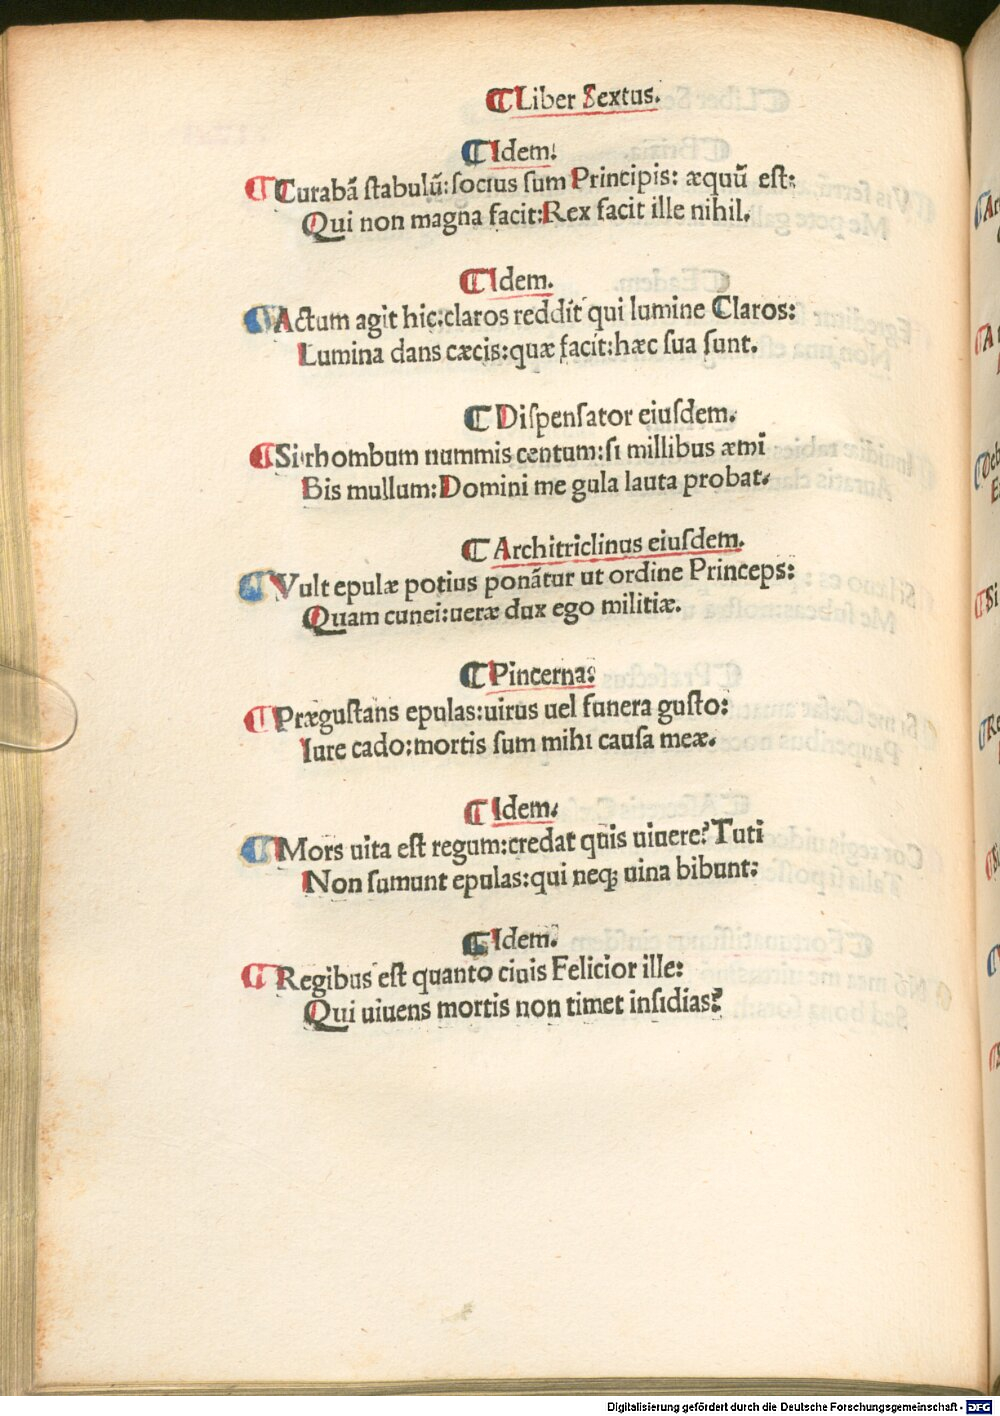 ¶ Liber Sextus.
¶ Idem.
¶ Curabā ſtabulū: ſocius ſum Principis: æquū eſt:
Qui non magna facit: Rex facit ille nihil.
¶ Idem.
¶ Actum agit hic: claros reddit qui lumine Claros:
Lumina dans cæcis: quæ facit: hæc ſua ſunt.
¶ Diſpenſator eiuſdem.
¶ Si rhombum nummis centum: ſi millibus æmi
Bis mullum: Domini me gula lauta probat.
¶ Architriclinus eiuſdem.
¶ Vult epulæ potius ponãtur ut ordine Princeps:
Quam cunei: ueræ dux ego militiæ.
¶ Pincerna:
¶ Præguſtans epulas: uirus uel funera guſto:
Iure cado: mortis ſum mihi cauſa meæ.
¶ Idem.
¶ Mors uita eſt regum: credat quis uiuere? Tuti
Non ſumunt epulas: qui neq; uina bibunt:
¶ Idem.
¶ Regibus eſt quanto ciuis Felicior ille:
Qui uiuens mortis non timet inſidias?
Digitalisierung gefördert durch die Deutsche Forschungsgemeinschaft - DFG